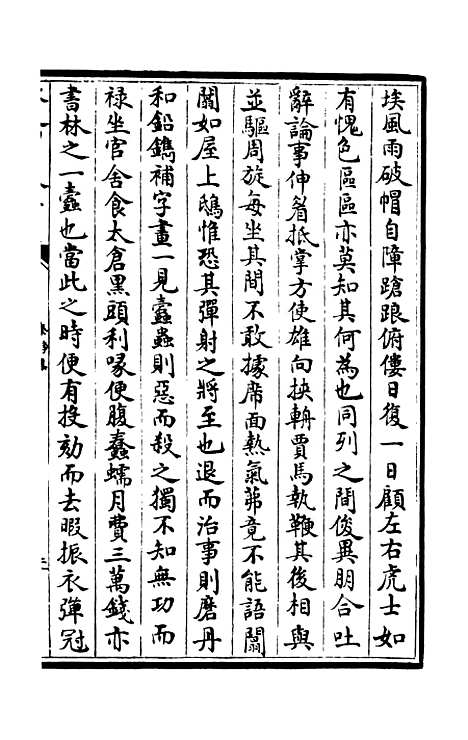 埃風雨破帽自障蹌踉俯僂日復一日顧左右虎士如
有愧色區區亦莫知其何為也同列之間俊異朋合吐
辭論事伸眉抵掌方使雄向挾輈賈馬執鞭其後相與
並驅周旋每坐其間不敢據席面熱氣茀竟不能語闒
闒如屋上鴟惟恐其彈射之將至也退而治事則磨丹
和鉛鐫補字畫一見蠹蟲則惡而殺之獨不知無功而
祿坐官舍食太倉黑頭利喙便腹蠢蠕月費三萬錢亦
書林之一蠹也當此之時便有投劾而去暇振衣彈冠